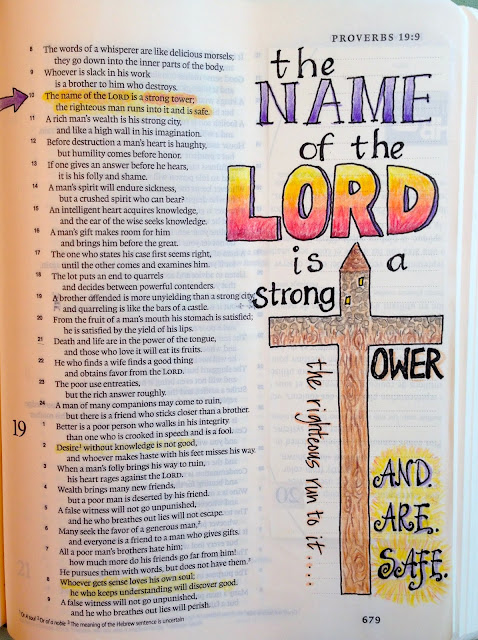 PROVERBS 19:9
8 The words of a whisperer are like delicious morsels;
they go down into the inner parts of the body.
9 Whoever is slack in his work
is a brother to him who destroys.
10 The name of the LORD is a strong tower;
the righteous man runs into it and is safe.
11 A rich man's wealth is his strong city,
and like a high wall in his imagination.
12 Before destruction a man's heart is haughty,
but humility comes before honor.
13 If one gives an answer before he hears,
it is his folly and shame.
14 A man's spirit will endure sickness,
but a crushed spirit who can bear?
15 An intelligent heart acquires knowledge,
and the ear of the wise seeks knowledge.
16 A man's gift makes room for him
and brings him before the great.
17 The one who states his case first seems right,
until the other comes and examines him.
18 The lot puts an end to quarrels
and decides between powerful contenders.
19 A brother offended is more unyielding than a strong city,
and quarreling is like the bars of a castle.
20 From the fruit of a man's mouth his stomach is satisfied;
he is satisfied by the yield of his lips.
21 Death and life are in the power of the tongue,
and those who love it will eat its fruits.
22 He who finds a wife finds a good thing
and obtains favor from the LORD.
23 The poor use entreaties,
but the rich answer roughly.
24 A man of many companions may come to ruin,
but there is a friend who sticks closer than a brother.
19
1 Better is a poor person who walks in his integrity
than one who is crooked in speech and is a fool.
2 Desire¹ without knowledge is not good,
and whoever makes haste with his feet misses his way.
3 When a man's folly brings his way to ruin,
his heart rages against the LORD.
4 Wealth brings many new friends,
but a poor man is deserted by his friend.
5 A false witness will not go unpunished,
and he who breathes out lies will not escape.
6 Many seek the favor of a generous man,²
and everyone is a friend to a man who gives gifts.
7 All a poor man's brothers hate him;
how much more do his friends go far from him!
He pursues them with words, but does not have them.³
8 Whoever gets sense loves his own soul;
he who keeps understanding will discover good.
9 A false witness will not go unpunished,
and he who breathes out lies will perish.
¹ Or a soul ² Or of a noble ³ The meaning of the Hebrew sentence is uncertain
the
NAME
of the
LORD
is a
strong
TOWER
the righteous run to it....
AND.
ARE.
SAFE.
679